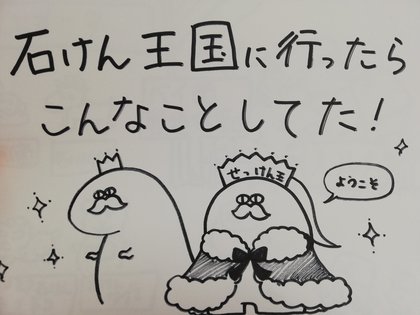 石けん王国に行ったら
こんなことしてた!
せっけん王
ようこそ